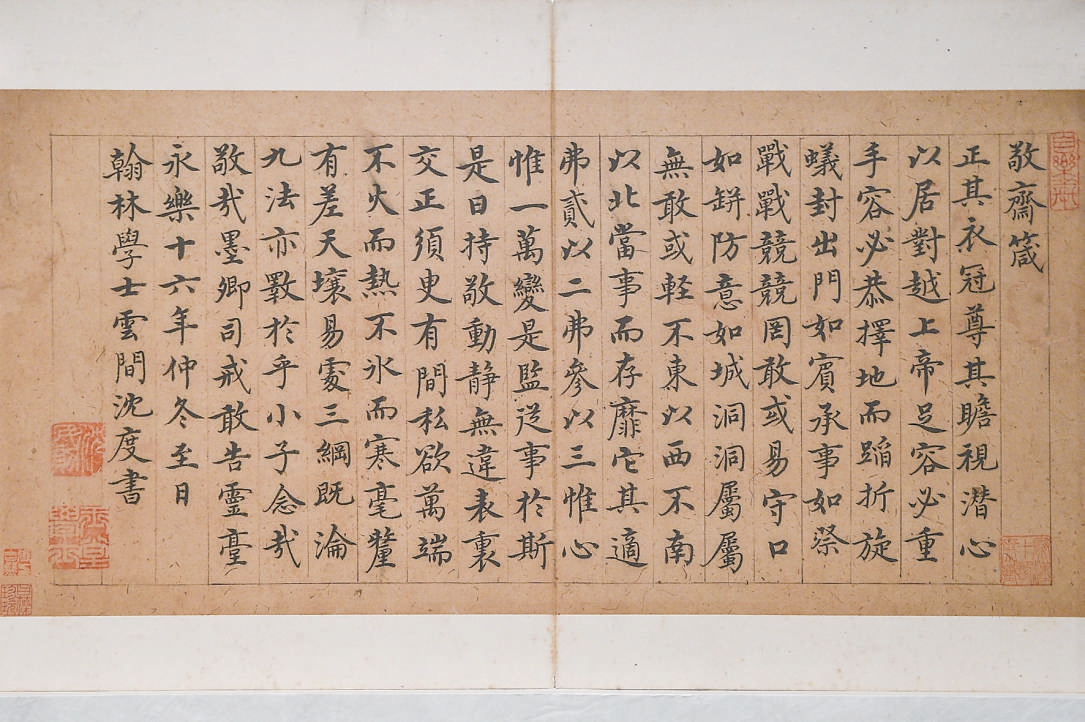 敬齋箴
正其衣冠尊其瞻視潜心
以居對越上帝足容必重
手容必恭擇地而蹈折旋
蟻封出門如賓承事如祭
戰戰兢兢罔敢或易守口
如缾防意如城洞洞屬屬
無敢或軽不東以西不南
以北當事而存靡它其適
弗貳以二弗參以三惟心
惟一萬變是監從事於斯
是曰持敬動静無違表裏
交正須臾有間私欲萬端
不火而熱不氷而寒毫釐
有差天壤易處三綱既淪
九法亦斁於乎小子念㦲
敬㦲墨卿司戒敢告靈臺
永樂十六年仲冬至日
翰林學士雲間沈度書